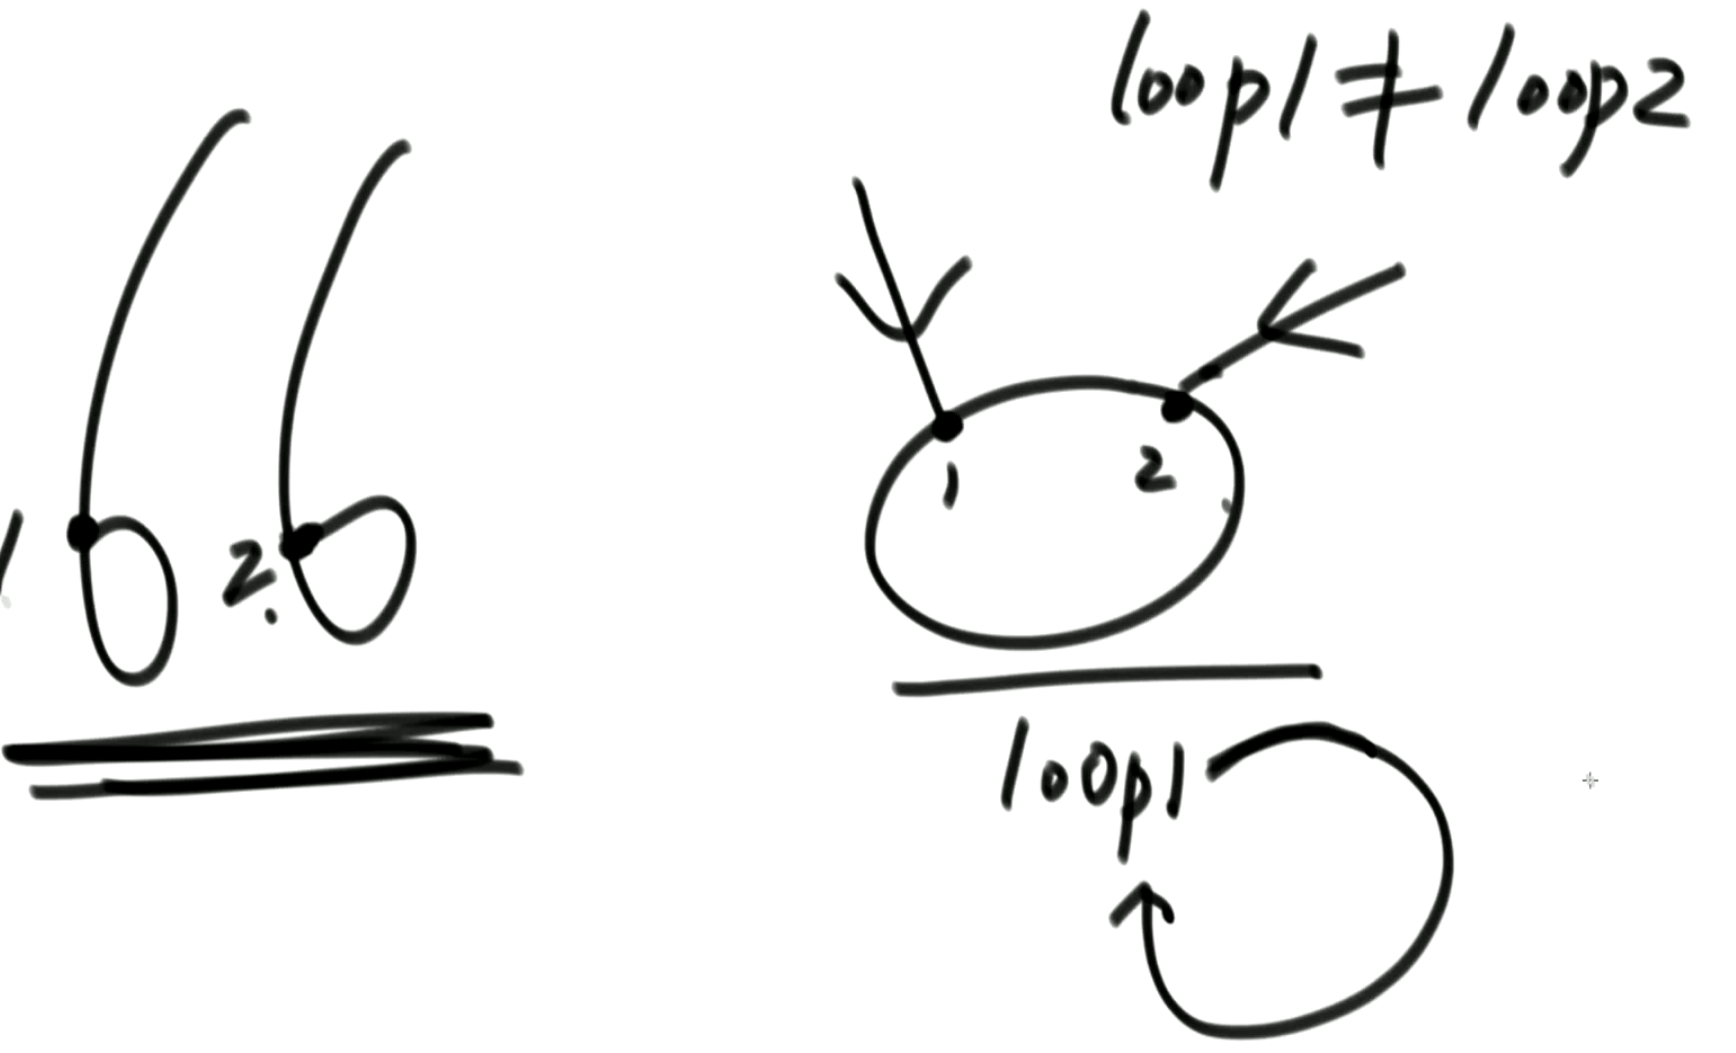 loop1 ≠ loop2
1 2
1 2.
loop1